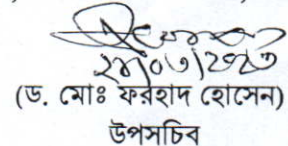 ২৪/০৭/২০২৩
(ড. মোঃ ফরহাদ হোসেন)
উপসচিব